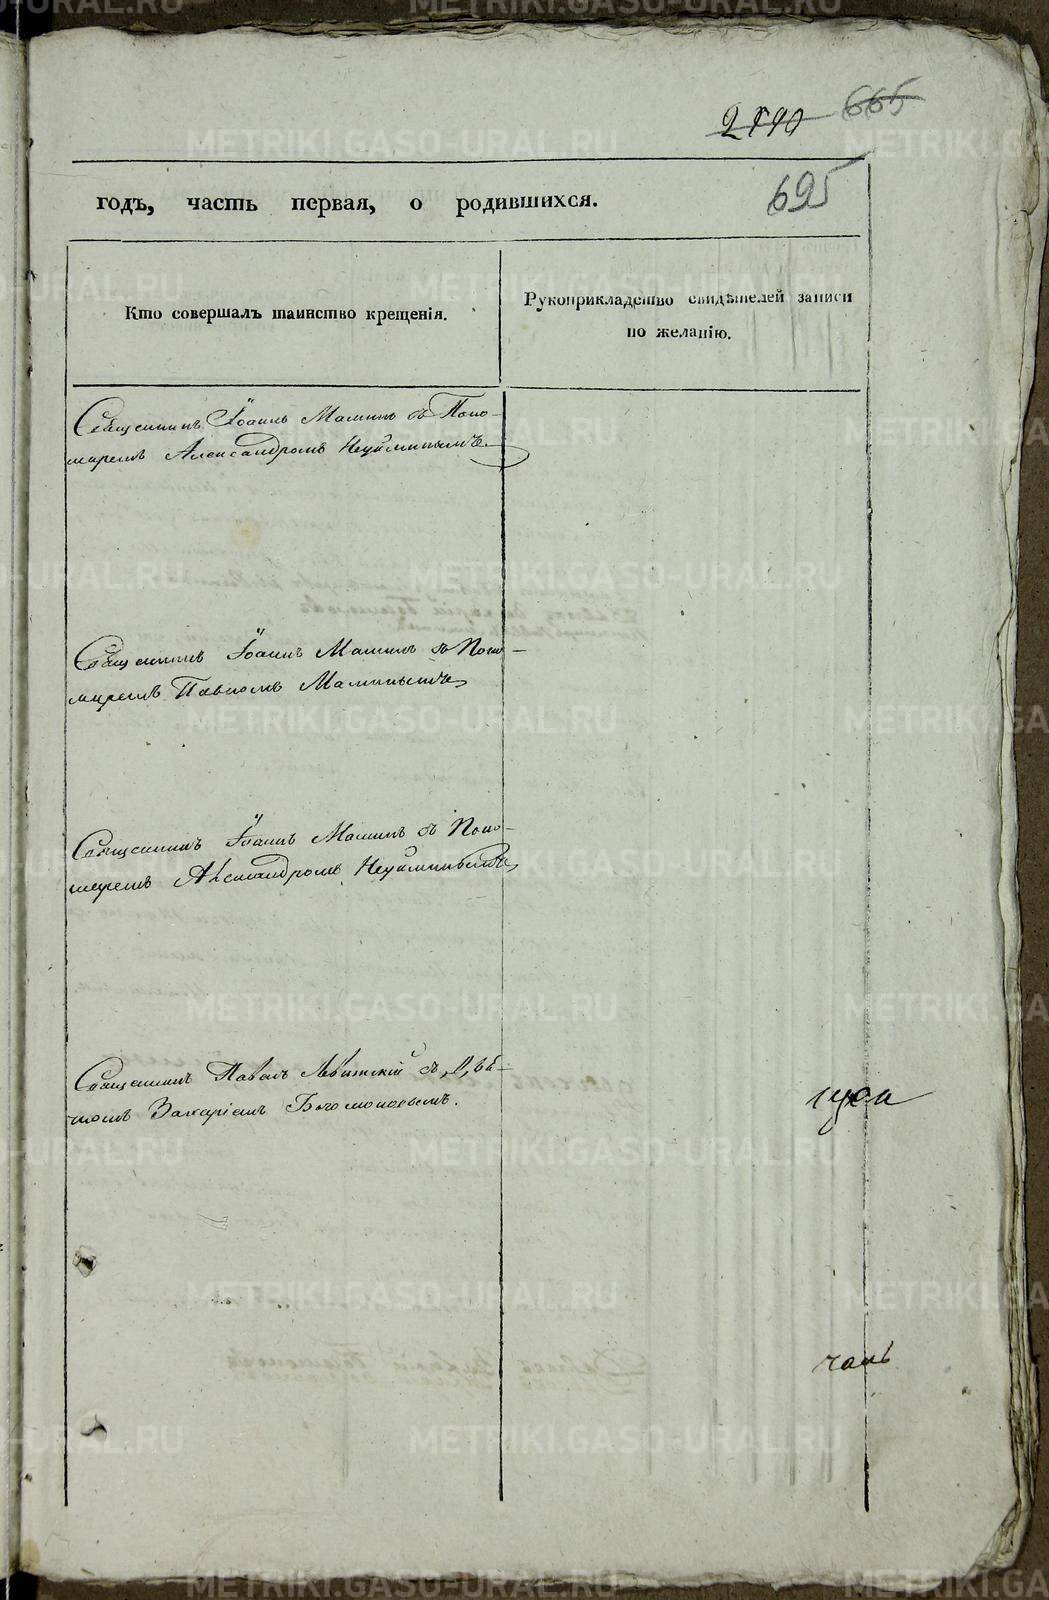 2890 665
695
годъ, часть первая, о родившихся.
Кто совершалъ таинство крещенія.
Рукоприкладство свидѣтелей записи
по желанію.
Священникъ Іоаннъ Мамин съ Поно-
маремъ Александромъ Неуйминымъ.
Священникъ Іоаннъ Мамин съ Поно-
маремъ Павломъ Маминымъ
Священникъ Іоаннъ Мамин съ Поно-
маремъ Александромъ Неуйминымъ
Священникъ Павелъ Левитскій съ Дья-
Захаріемъ Богомоловымъ.
METRIKI.GASO-URAL.RU